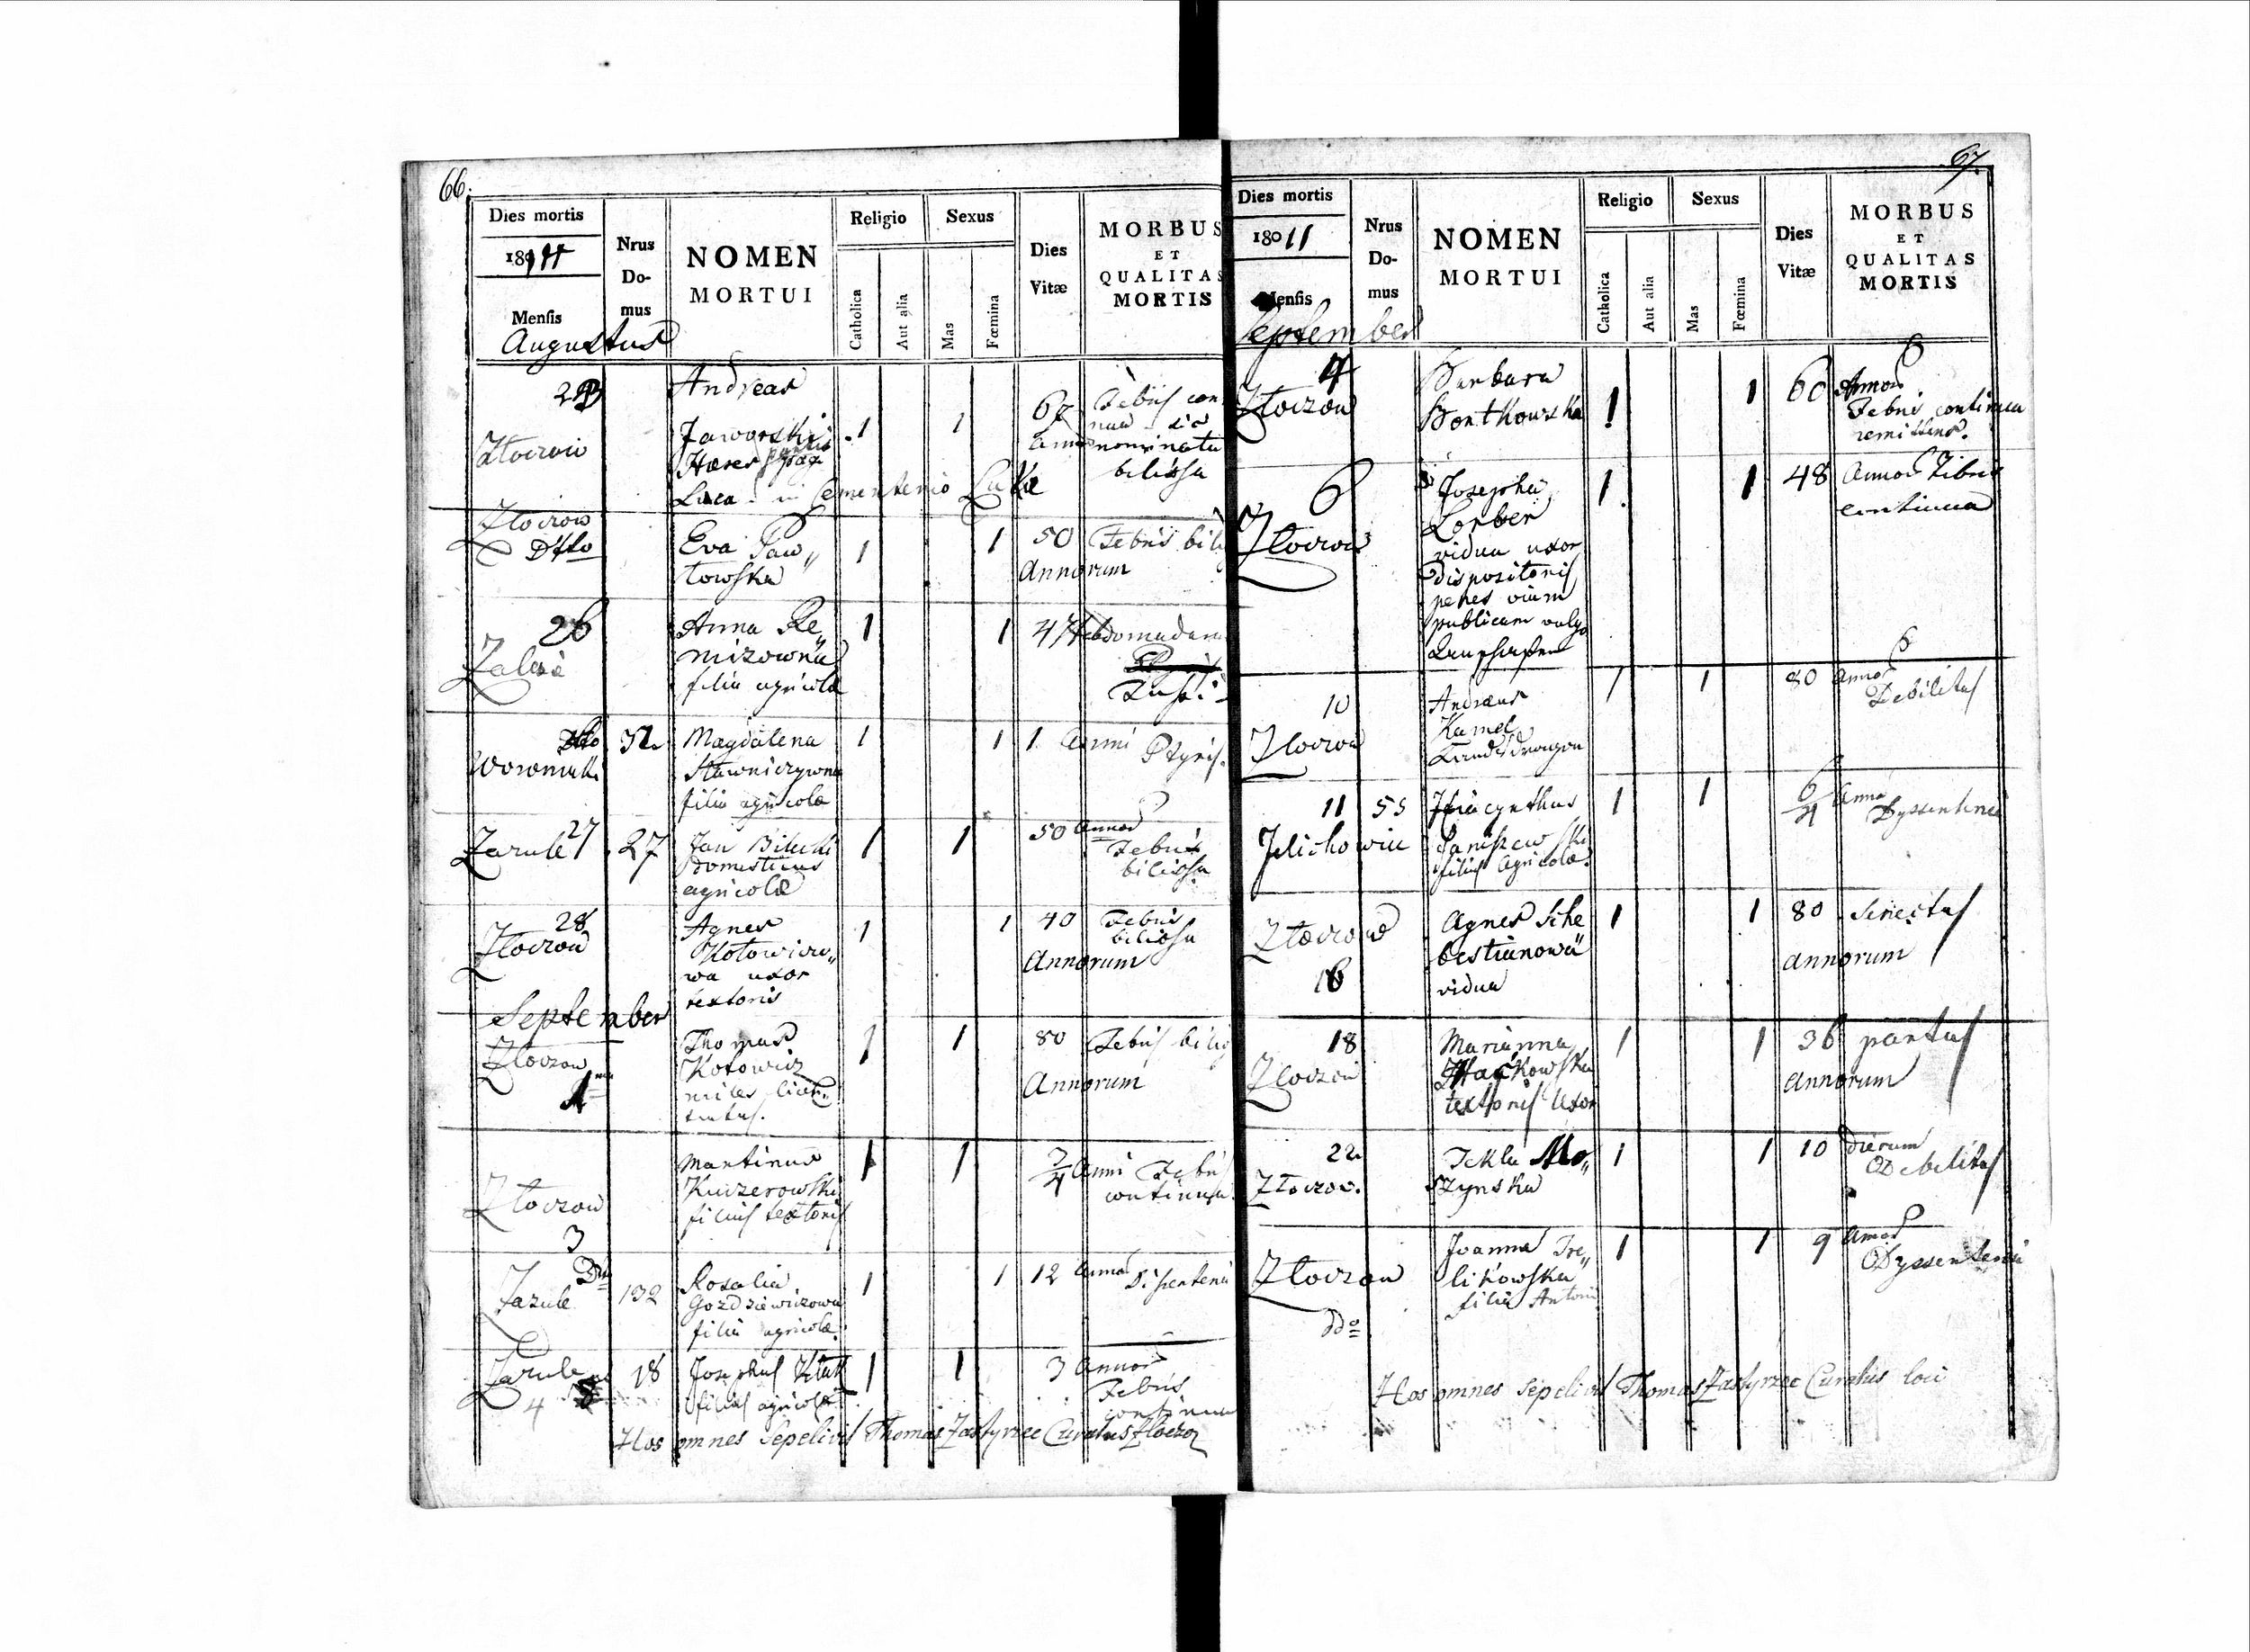 66.
Dies mortis
1811
Mensis
Augustus
Nrus
Do-
mus
NOMEN
MORTUI
Religio
Catholica
Aut alia
Sexus
Mas
Fœmina
Dies
Vitæ
MORBUS
ET
QUALITAS
MORTIS
Złoczow
Andreas
Jaworski
Hæres
in Cementerio
1
1
67
Febris con
nua sic
nominata
biliosa
Złoczow
Dtto
Eva Paw„
łowska
1
1
50
Annorum
Febris bili
26
Zalesie
Anna Re„
nizowna
filia agricolæ
1
1
4
hebdomadarum
Dtto
32
Magdalena
filia agricolæ
1
1
1 Anni
27
Zazule
27
Jan Bilecki
Domesticus
agricolæ
1
1
50 Annor
Febris
biliosa
28
Złoczow
Agnes
Kotowiczo„
wa uxor
textoris
1
1
40
Annorum
Febris
biliosa
September
Złoczow
1ma
Thomas
Kotowicz
miles
1
1
80
Annorum
Febris bilio
Złoczow
3
Martinus
Kuczerowski
filius textoris
1
1
3/4 Anni
Febris
continua
Dtto
Zazule
132
Rosalia
Gozdziewiczowa
filia agricolæ
1
1
12 Annor
Disenteria
Zazule
4
18
Josephus
filius agricolæ
1
1
3 Annor
Febris
continua
Hos omnes Sepelivit Thomas Zastyrzec Curatus Złoczo
67.
Dies mortis
1811
Mensis
September
Nrus
Do-
mus
NOMEN
MORTUI
Religio
Catholica
Aut alia
Sexus
Mas
Fœmina
Dies
Vitæ
MORBUS
ET
QUALITAS
MORTIS
4
Złoczow
Barbara
Bontkowska
1
1
60 Annor
Febris continua
remittens.
6
Złoczow
Josepha
Lorber
vidua uxor
dispositoris
penes viam
publicam vulgo
1
1
48 Annor Febris
continua
10
Złoczow
Andreas
Kamel
Landsdragon
1
1
80 Annor
Debilitas
11
Jelichowice
55
Hiacynthus
Janiszewski
filius Agricolæ
1
1
6/4 Anno
Dyssenteria
Złoczow
16
Agnes Sche
bestianowa
vidua
1
1
80
annorum
Senectus
18
Złoczow
Marianna
textoris Uxor
1
1
36
annorum
partus
22
Złoczow.
Tekla Mo„
szynska
1
1
10 dierum
Debilitas
Złoczow
ddo
Joanna Tre„
likowska
filia Antoni
1
1
9 Annor
Dyssenteria
Hos omnes Sepelivit Thomas Zastyrzec Curatus loci